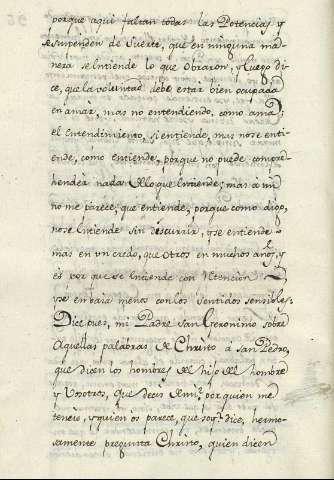 porque aqui faltan todas las Potencias y
se suspenden de suerte, que en ninguna ma-
nera se entiende lo que obraron, y luego di-
ce, que la voluntad debe estar bien ocupada
en amar, mas no entendiendo, como ama:
el entendimiento, si entiende, mas nose enti-
ende, como entiende, porque no puede compre-
hender nada de lo que entiende; mas a mi
no me parece, que entiende, porque como digo,
nose entiende sin descurair, y se entiende
mas en un credo, que otros en muchos años, y
es por que se entiende con Atencion
y se embaia menos con los sentidos sensibles.
Dice pues, mi Padre San Geronimo sobre
aquellas palabras de Christo á San Pedro,
que dicen los hombres del hijo del hombre
y Vosotros, que decis de mi, por quien me
teneis, y quien os parece, que soy, dice, hermo-
samente pregunta Christo, quien dicen